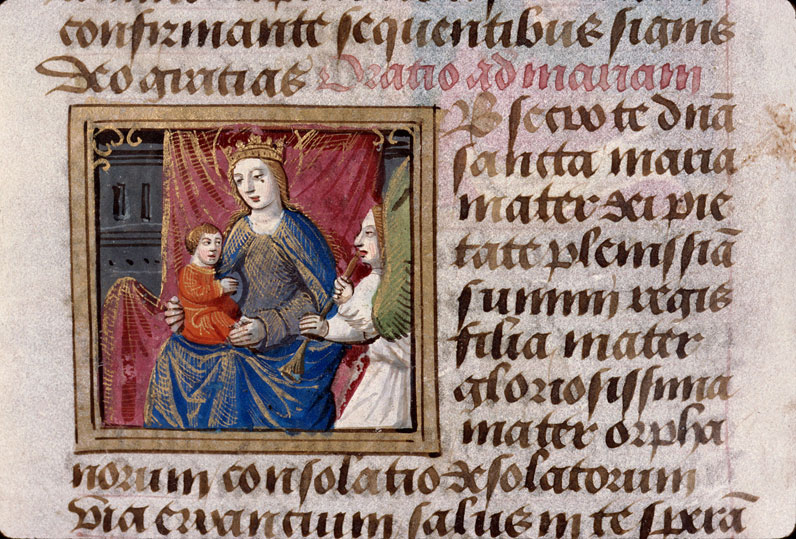 confirmante sequentibus signis
Deo gracias Oratio ad mariam
Obsecro te dnā
sancta maria
mater dei pie
tate plenissiā
summi regis
filia mater
gloriosissima
mater orpha
norum consolatio desolatorum
via errancium salus in te sperā